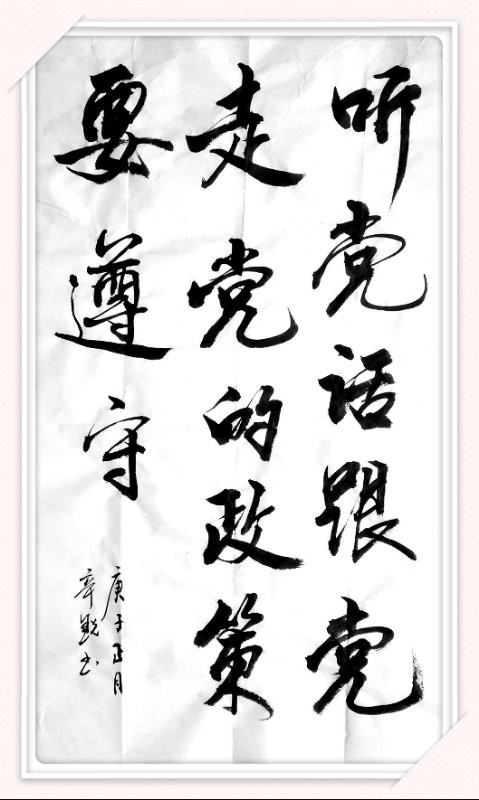 听党话跟党
走党的政策
要遵守
庚子正月
辛
书